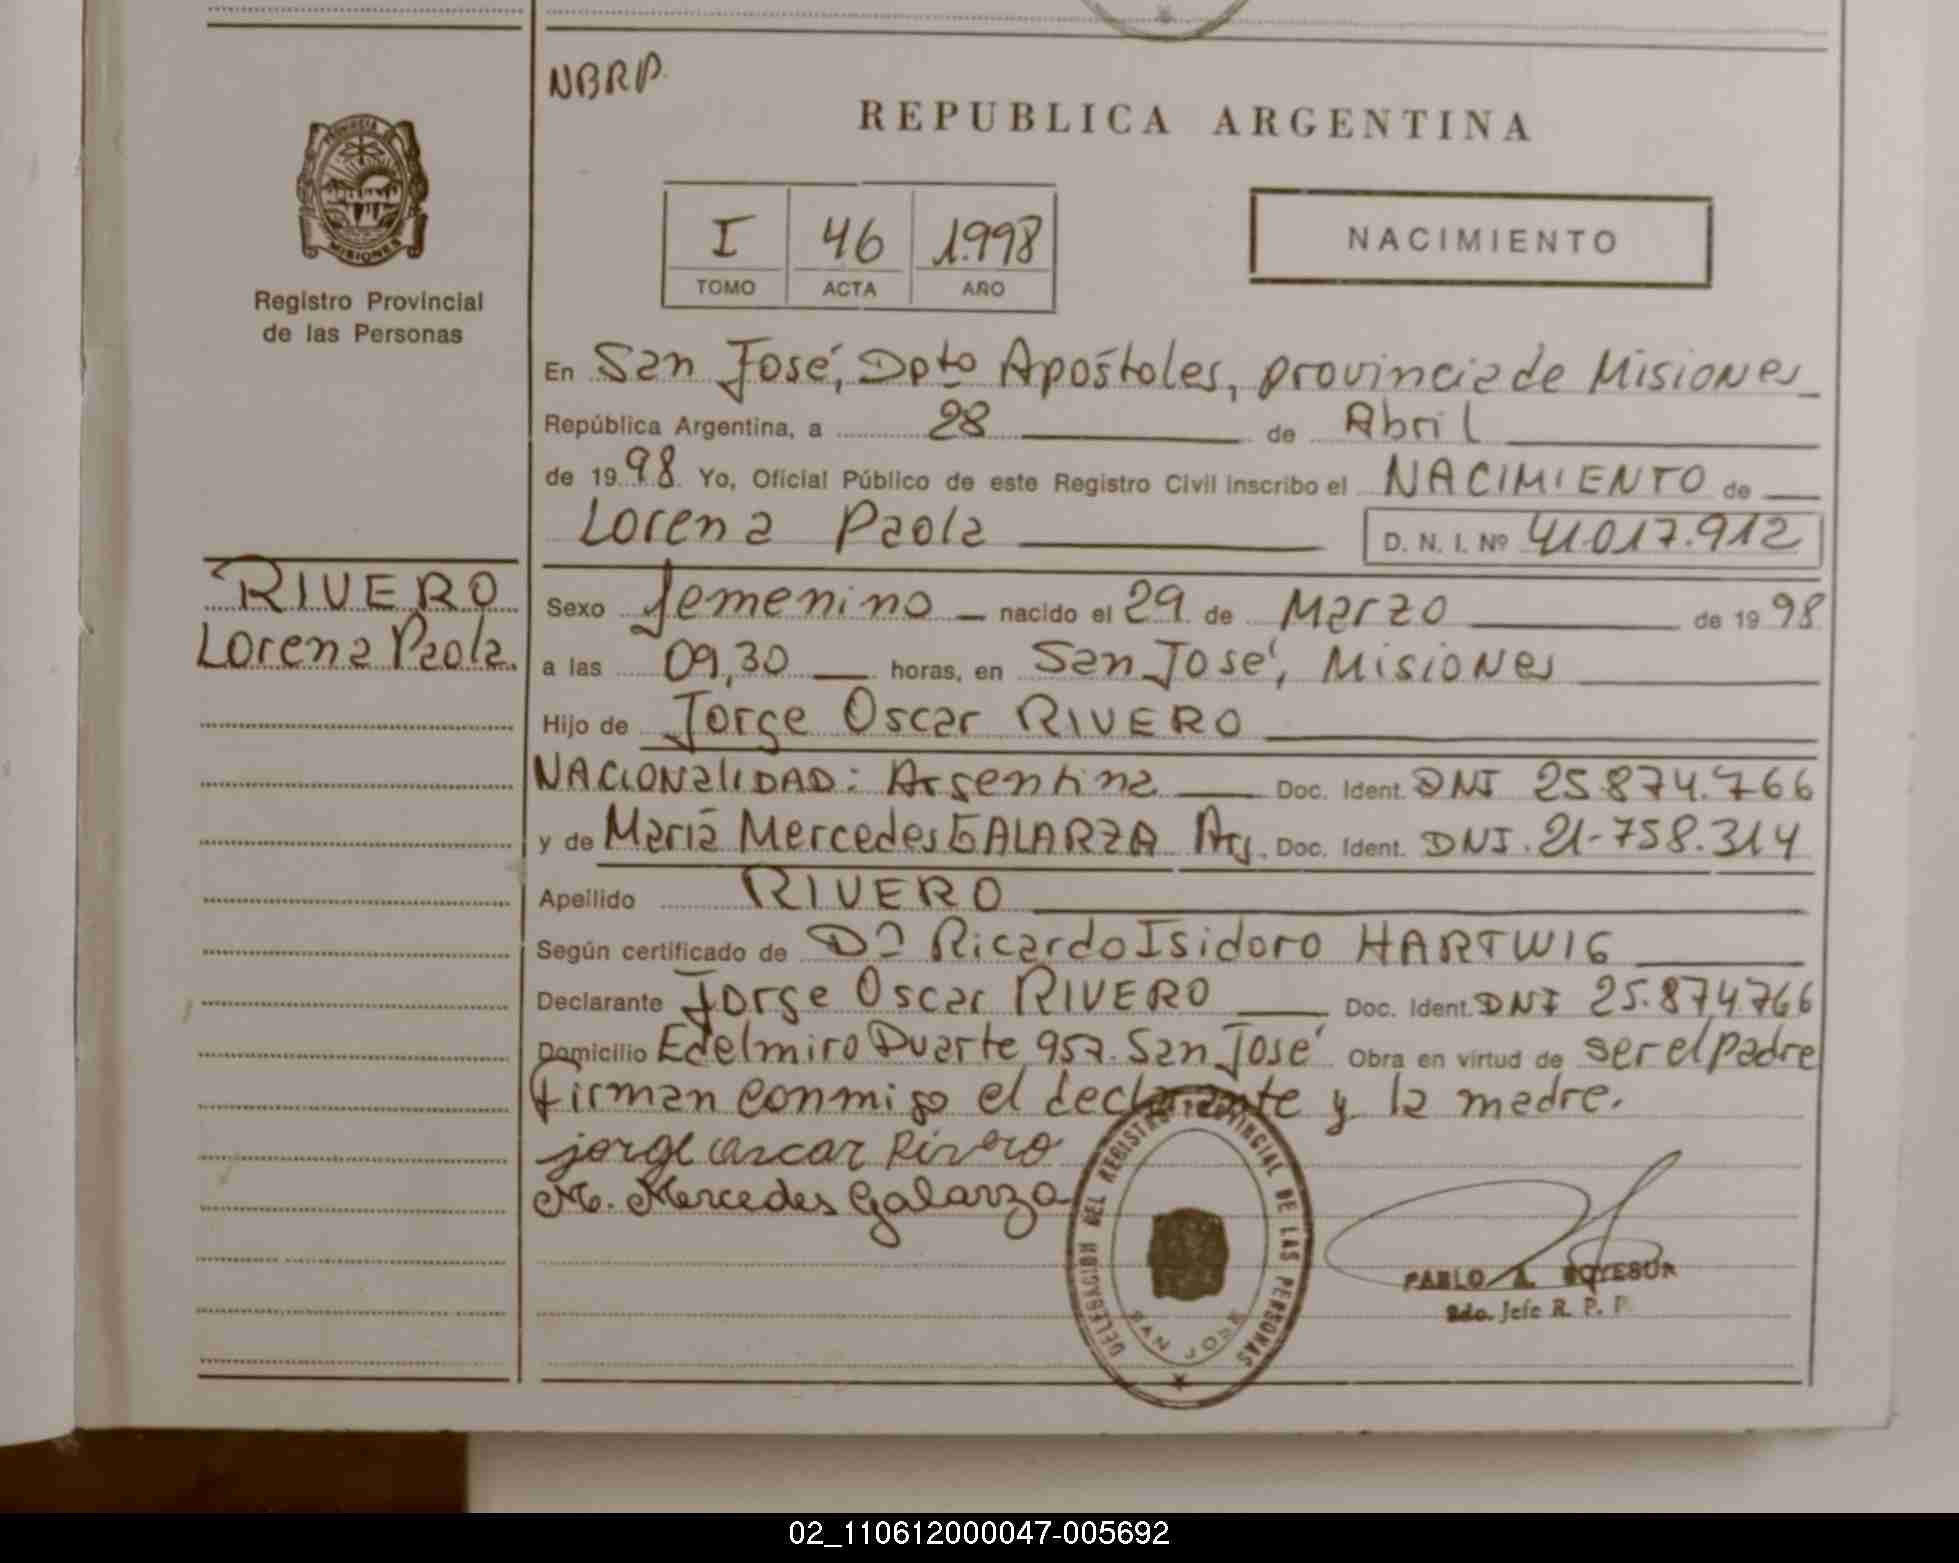 NBRP.
REPUBLICA ARGENTINA
PROVINCIA DE
MISIONES
Registro Provincial
de las Personas
I 46 1.998
TOMO ACTA AÑO
NACIMIENTO
En San José, Dpto Apóstoles, provincia de Misiones
República Argentina, a 28 de Abril
de 1998 Yo, Oficial Público de este Registro Civil inscribo el NACIMIENTO de
Lorena Paola D. N. I. Nº 41.017.912
RIVERO
Lorena Paola.
Sexo femenino nacido el 29 de Marzo de 1998
a las 09,30 horas, en San José, Misiones
Hijo de Jorge Oscar RIVERO
NACIONALIDAD: Argentina Doc. Ident. DNI 25.874.766
y de María Mercedes GALARZA Arg. Doc. Ident. DNI. 21-758.314
Apellido RIVERO
Según certificado de Dº Ricardo Isidoro HARTWIG
Declarante Jorge Oscar RIVERO Doc. Ident. DNI 25.874.766
Domicilio Edelmiro Duarte 957. San José Obra en virtud de ser el padre
Firman conmigo el declarante y la madre.
jorge oscar Rivero
M. Mercedes Galarza
DELEGACION DEL REGISTRO PROVINCIAL DE LAS PERSONAS
SAN JOSE
PABLO A.
2do. Jefe R. P. P.
02_110612000047-005692